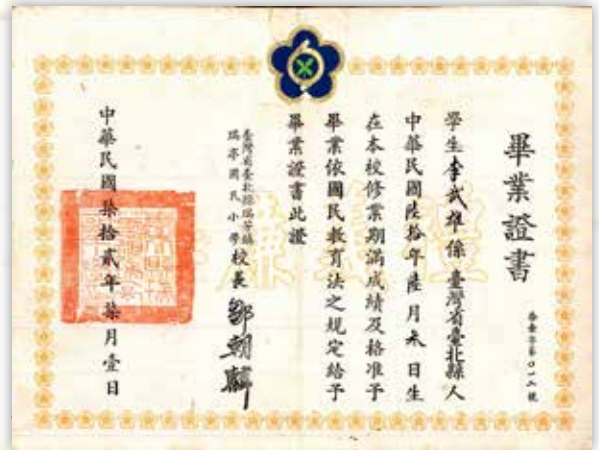 畢業證書
學生李武雄係臺灣省臺北縣人
中華民國陸拾年陸月 日生
在本校修業期滿成績及格准予
畢業依國民教育法之規定給予
畢業證書此證
臺灣省臺北縣瑞芳鎮
瑞亭國民小學校長鄒朝麟
中華民國柒拾貳年柒月壹日